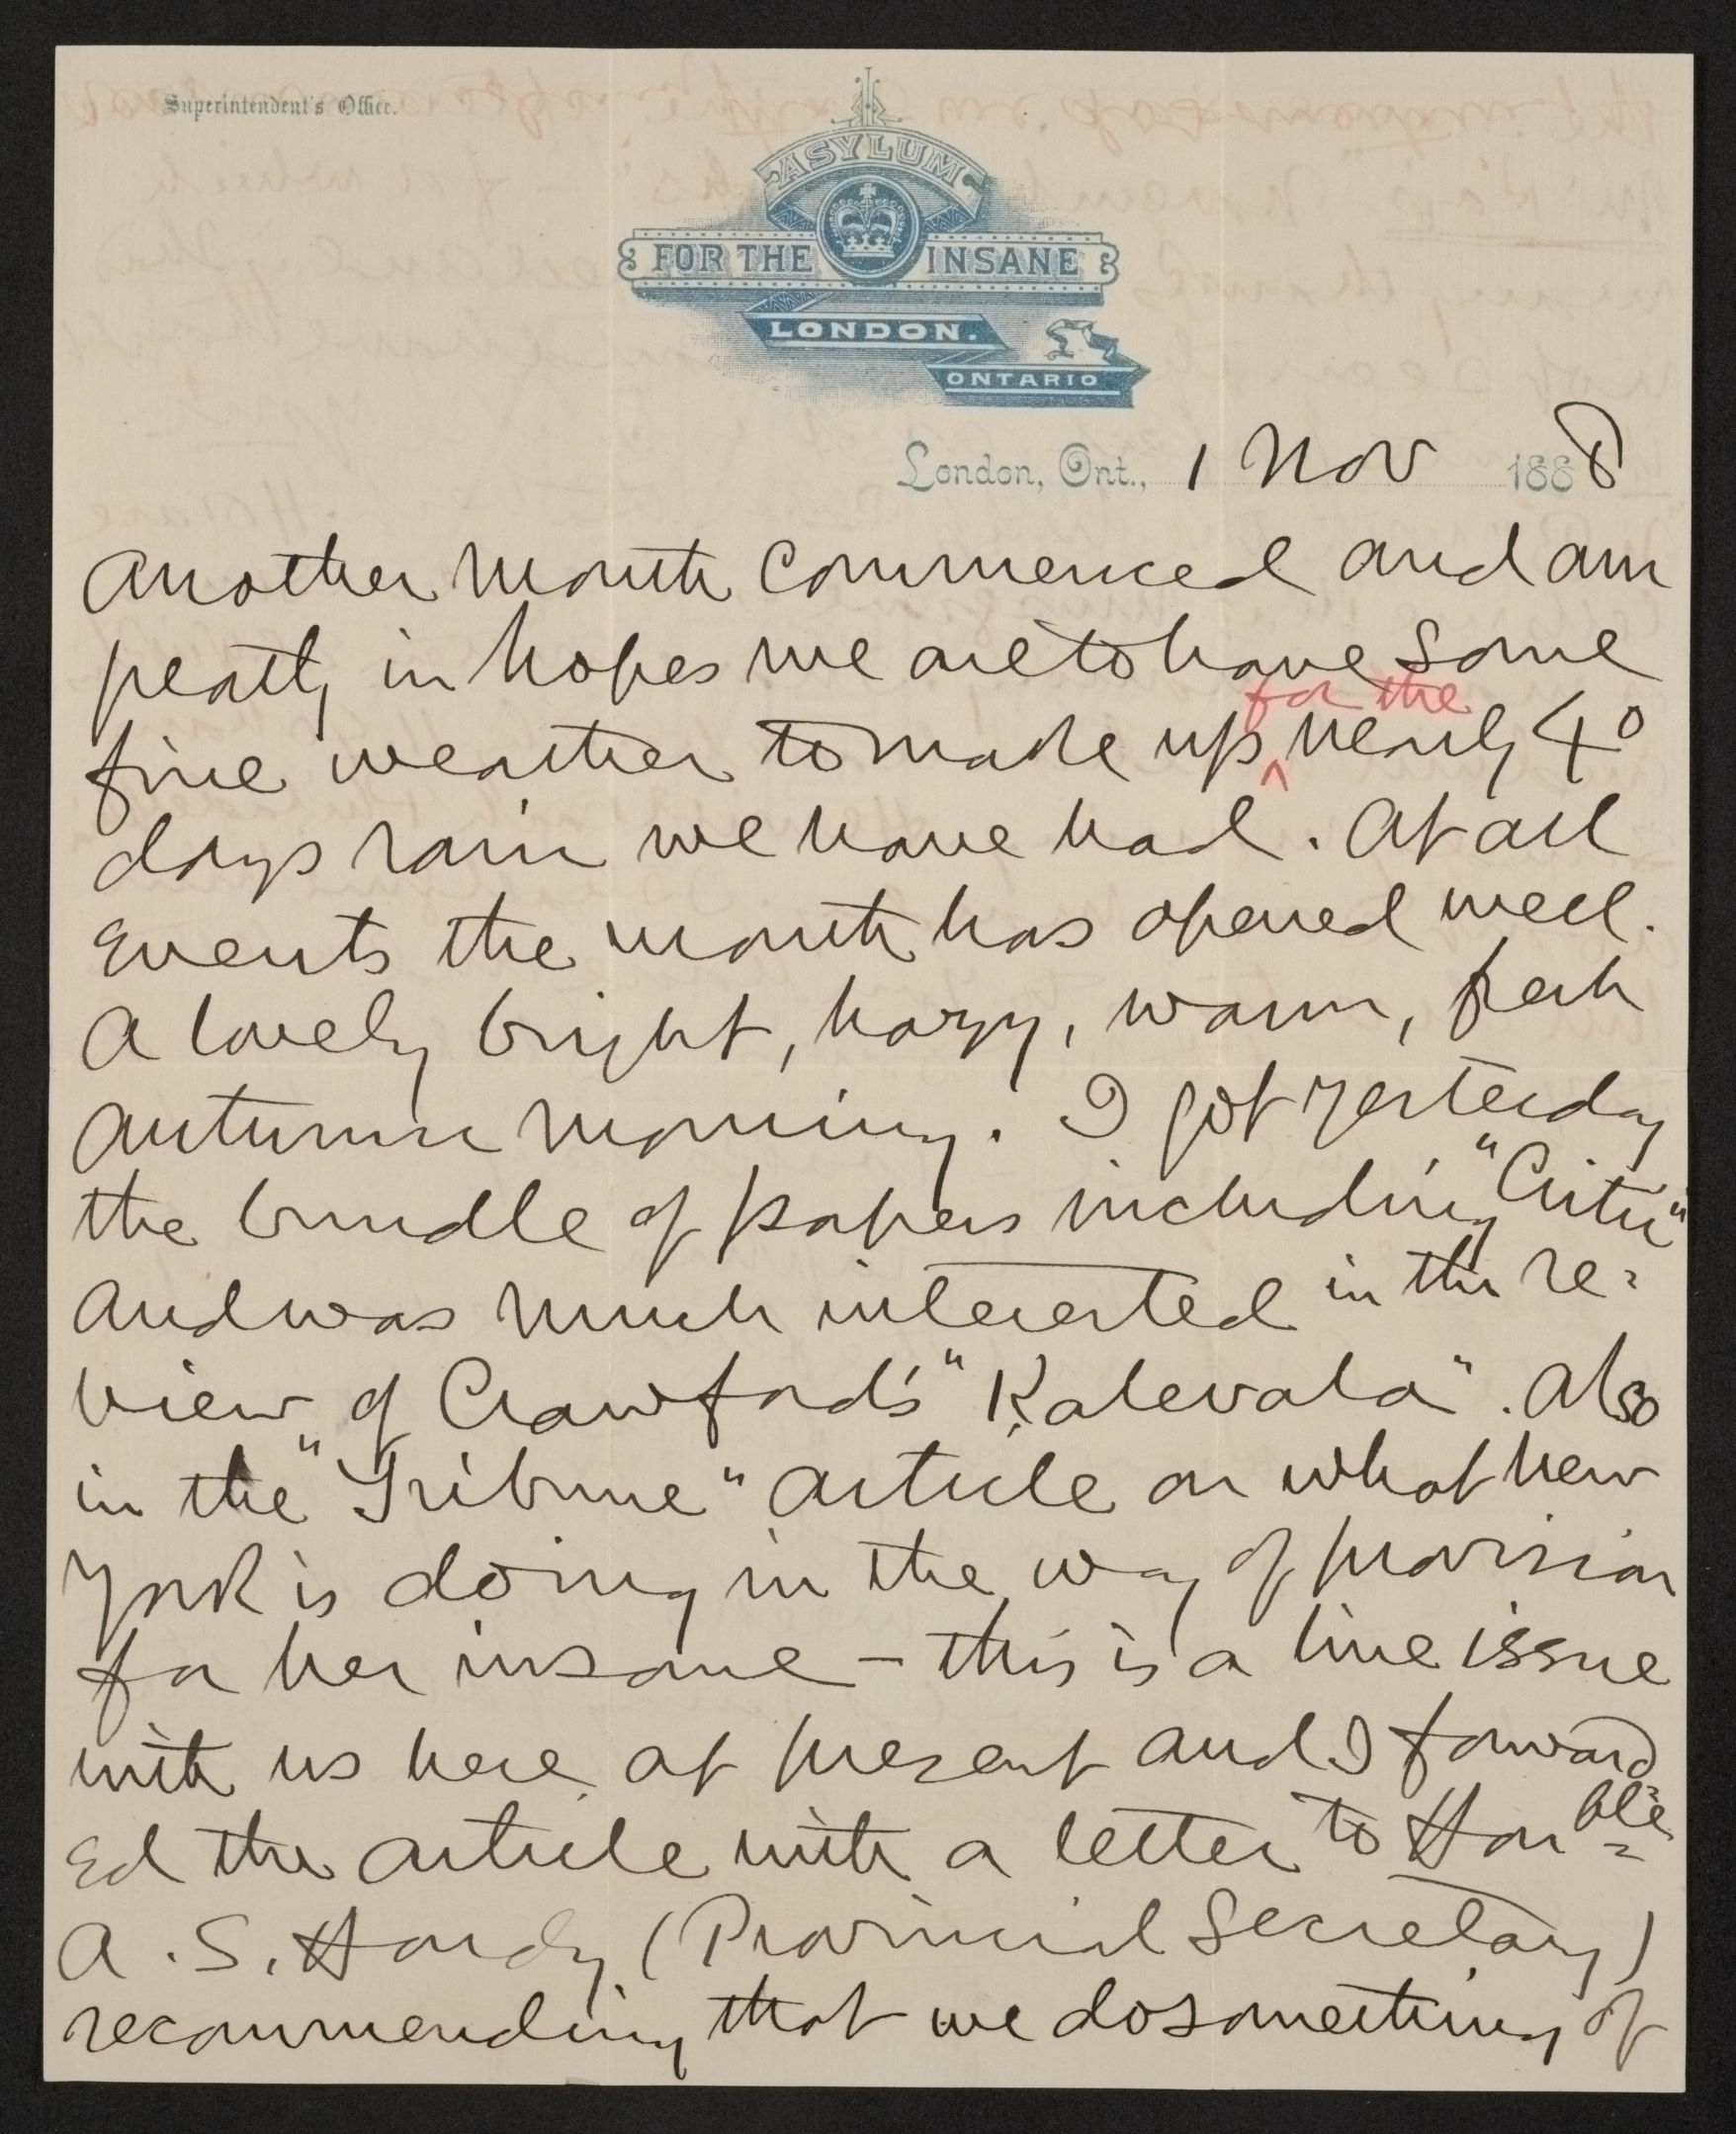 Superintendent's Office.
ASYLUM
FOR THE INSANE
LONDON.
ONTARIO
London, Ont., 1 Nov 1888
Another month commenced and am
in hopes we are to have some
for the
fine weather to make up ^ nearly 40
days rain we have had. At all
Events the month has opened well.
A lovely bright, hazy, warm, fresh
autumn morning. I got yesterday
the bundle of papers including "Critic"
and was much interested in the re-
view of Crawford's "Kalevala". Also
in the "Tribune" article on what New
York is doing in the way of provision
for her insane – this is a live issue
with us here at present and I forward
Ed the article with a letter to Honble
A. S. Hardy (Provincial Secretary)
recommending that we do something of